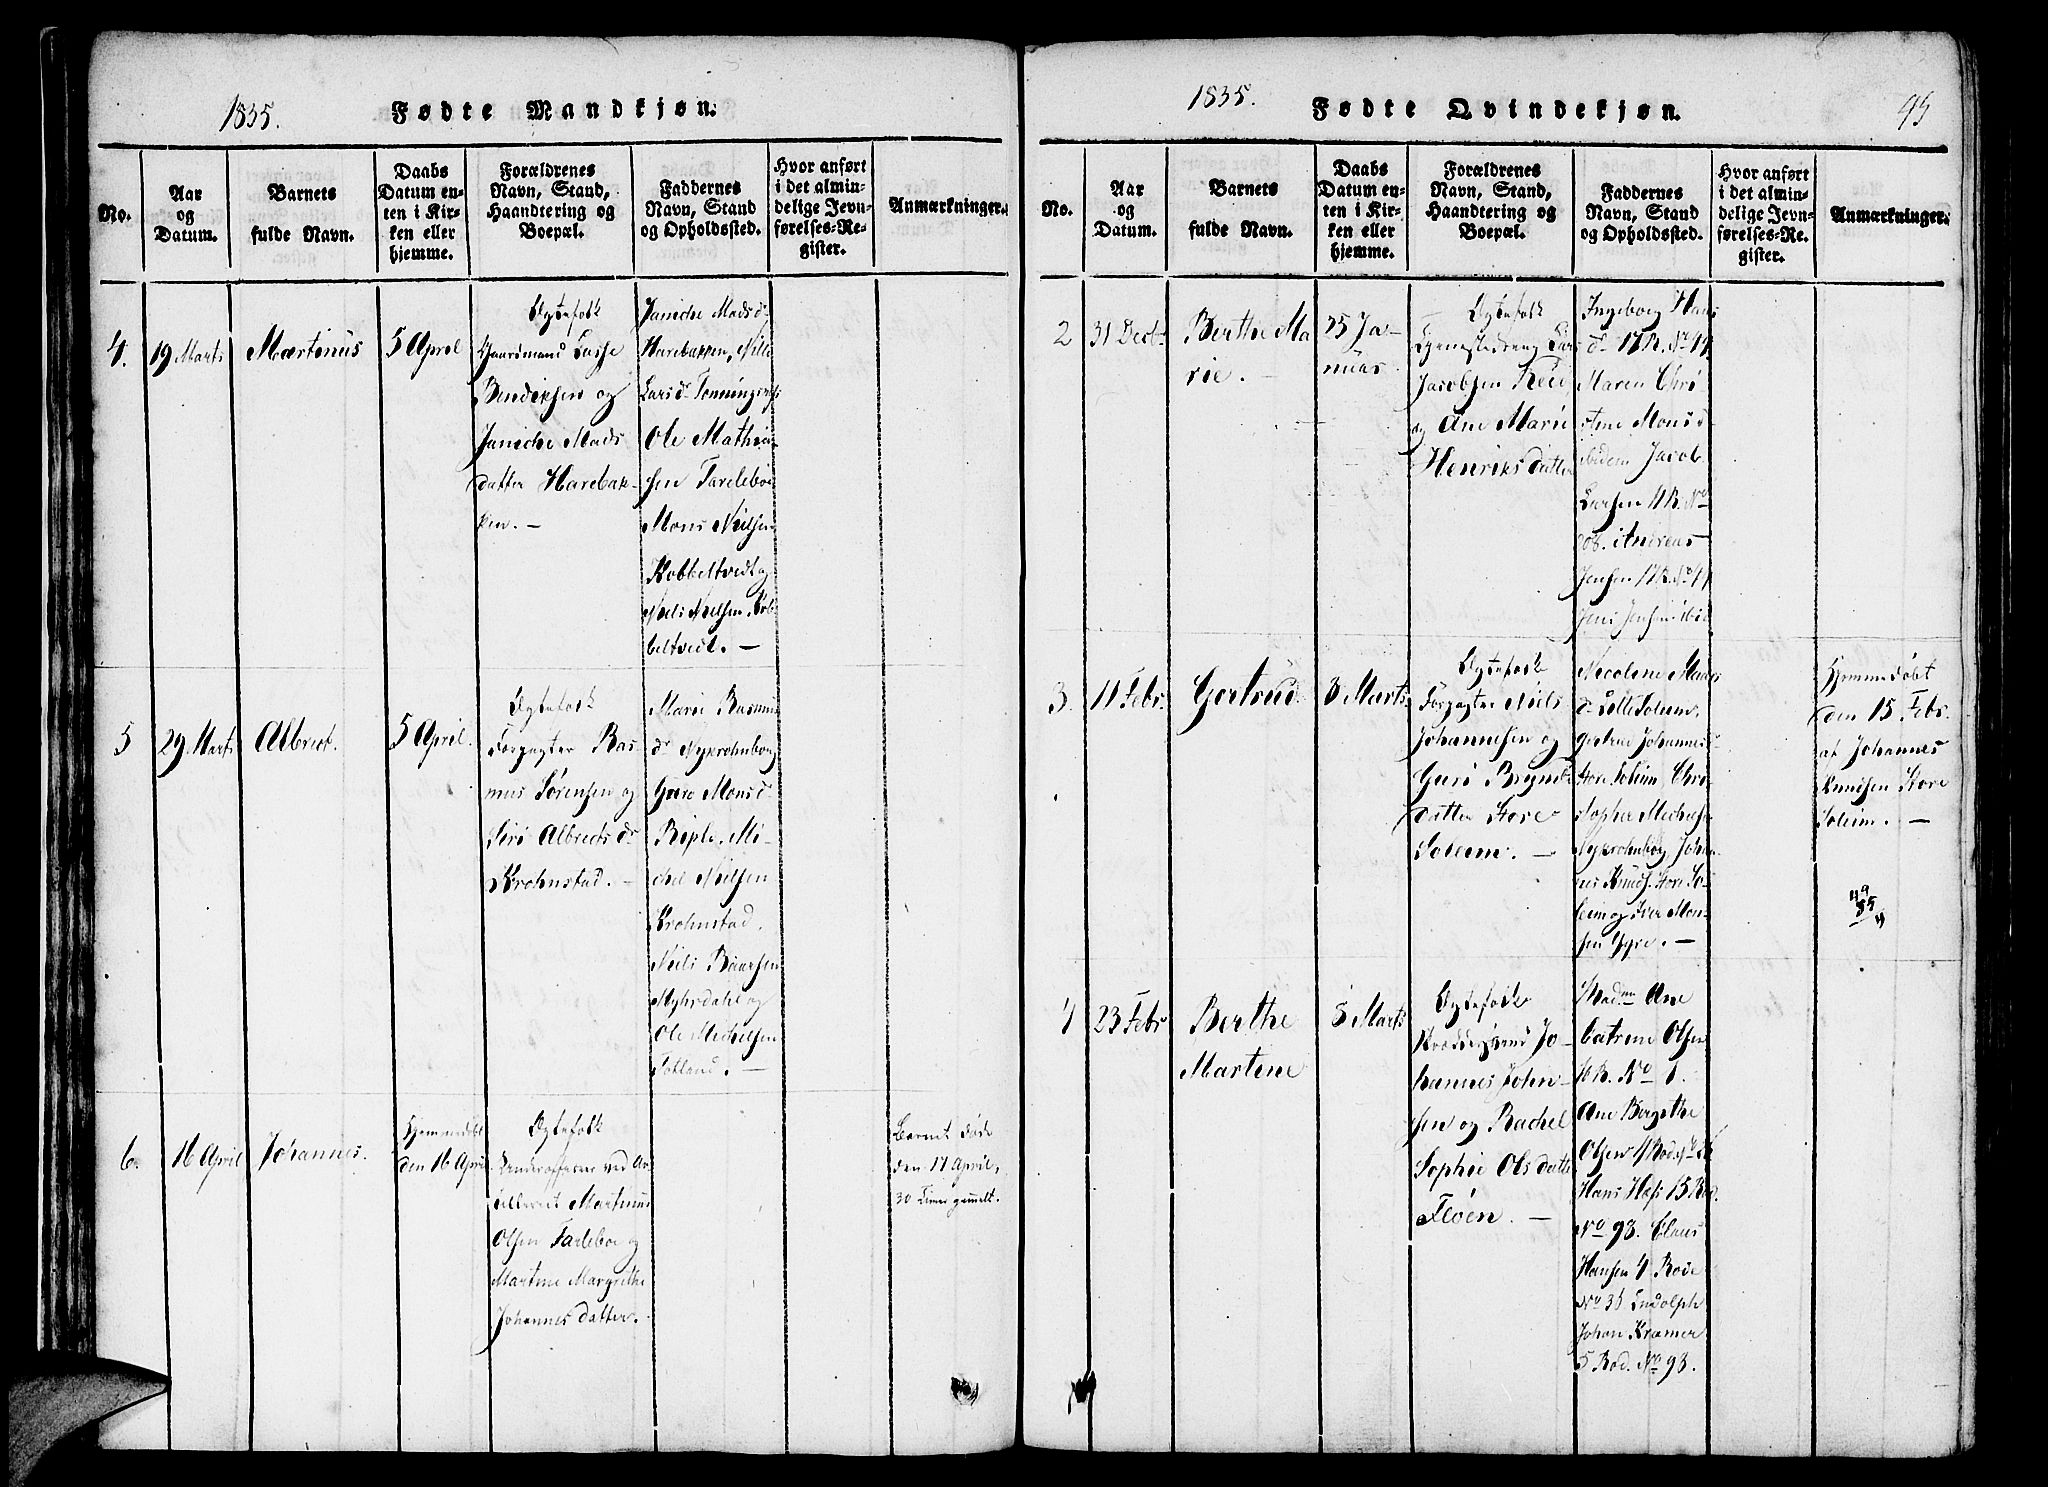 1835.
Fødte Mandkjøn.
No.
Aar
og
Datum.
Barnets
fulde Navn.
Daabs
Datum en-
ten i Kir-
ken eller
hjemme.
Forældrenes
Navn, Stand,
Haandtering og
Boepæl.
Faddernes
Navn, Stand
og Opholdssted.
Hvor anført
i det almin-
delige Jevn-
førelses-Re-
gister.
Anmærkninger.
4.
19 Marts
Martinus
5 April
Ægtefolk
Gaardmand Lasse
Bendixsen og
Janiche Mads
datter Harebak-
ken. —
Janiche Madsd.
Harebakken, Nille
Larsdr
Ole Mathia-
sen Tarlebøe
Mons Nielsen
Kobbeltvedt og
Niels Nielsen Kob-
beltvedt. —
5
29 Marts
Albrect.
5 April.
Ægtefolk
Forpagter Ras-
mus Sørensen og
Siri Albrects dr
Krohnstad. —
Mari Rasmus
dr Nykrohnborg
Guro Monsd
Riple, Mi-
chel Nielsen
Krohnstad.
Niels Baarsen
Myhrdahl og
Ole Michelsen
Totland. —
6.
16 April
Johannes.
Hjemmedøbt
den 16 April
Ægtefolk
Underofficeer ved Ar-
tilleriet Martinus
Olsen Tarlebøe og
Martine Margrethe
Johannes datter.
Barnet døde
den 17 April,
30 Timer gammelt.
1835.
Fødte Qvindekjøn.
95
No.
Aar
og
Datum.
Barnets
fulde Navn.
Daabs
Datum en-
ten i Kir-
ken eller
hjemme.
Forældrenes
Navn, Stand,
Haandtering og
Boepæl.
Faddernes
Navn, Stand
og Opholdssted.
Hvor anført
i det almin-
delige Jevn-
førelses-Re-
gister.
Anmærkninger.
2
31 Decb.
Berthe Ma
rie. —
25 Ja-
nuar
Ægtefolk
Lars
Jacobsen
og Ane Marie
Henriks datter
Ingeborg Hans
dr 17 R. No 44.
Maren Chri
Ane Monsd
ibidem Jacob
Larsen 11 R. No
Andreas
Jensen 17 R. No 44
Jens Jensen ibid
3.
11 Febr.
Gertrud.
8 Marts
Ægtefolk
Forpagter Niels
Johannesen og
Guri Brynils
datter Store
Soleim. —
Nicoline Mads
dr Lille Soleim,
Gertrud Johannesd
Store Soleim, Chri
stopher Michels.
Nykrohnborg, Johan
nes Knuds. Store So-
leim og Iver Mon-
sen Gyre. —
Hjemmedøbt
den 15 Febr.
af Johannes
Knudsen Store
Soleim. —
4
23 Febr
Berthe
Martine
8 Marts
Ægtefolk
Jo-
hannes John-
sen og Rachel
Sophie Ols datter
Fløen. —
Madme Ane
Catrine Olsen
10 R. No 1.
Ane Bergithe
Olsen 4 Rod. No
Hans Hess 15 Rod.
No 98. Claus
Hansen 4 Rode
No 36 Ludolph
Johan Kramer
5 Rod. No 98.